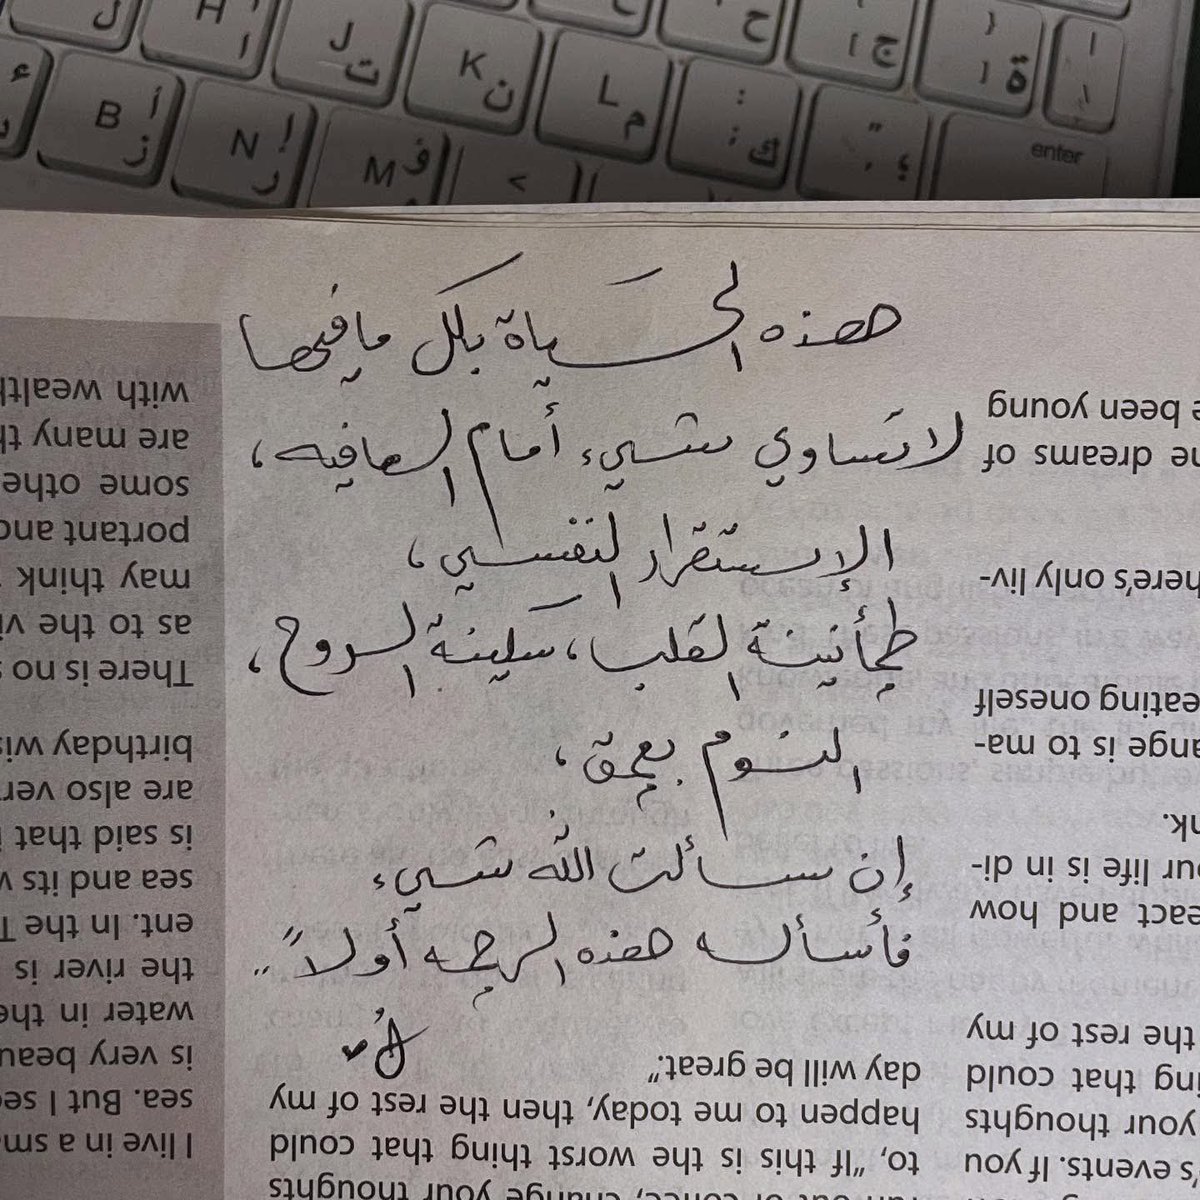 هذه الحياة بكل ما فيها
لا تساوي شيء أمام العافيه ،
الإستقرار النفسي ،
طمأنينة القلب ، سكينة الروح ،
النوم بعمق ،
إن سألت الله شيء
فأسأله هذه الرحمه أولاً ..
e been young
he dreams of
here's only liv-
eating oneself
ange is to ma-
nk.
our life is in di-
eact and how
the rest of my
ing that could
your thoughts
's events. If you
day will be great."
happen to me today, then the rest of my
to, "If this is the worst thing that could
with wealth
are many th
some othe
portant and
may think
as to the vi
There is no s
birthday wis
are also ver
is said that
sea and its w
ent. In the T
the river is
water in the
is very beau
sea. But I see
I live in a sma
H
ل
ت
K
ن
L
م
ح
ج
ة
B
أ
ز
N
إ
ر
M
ف
<
:
؛
ك
"
enter